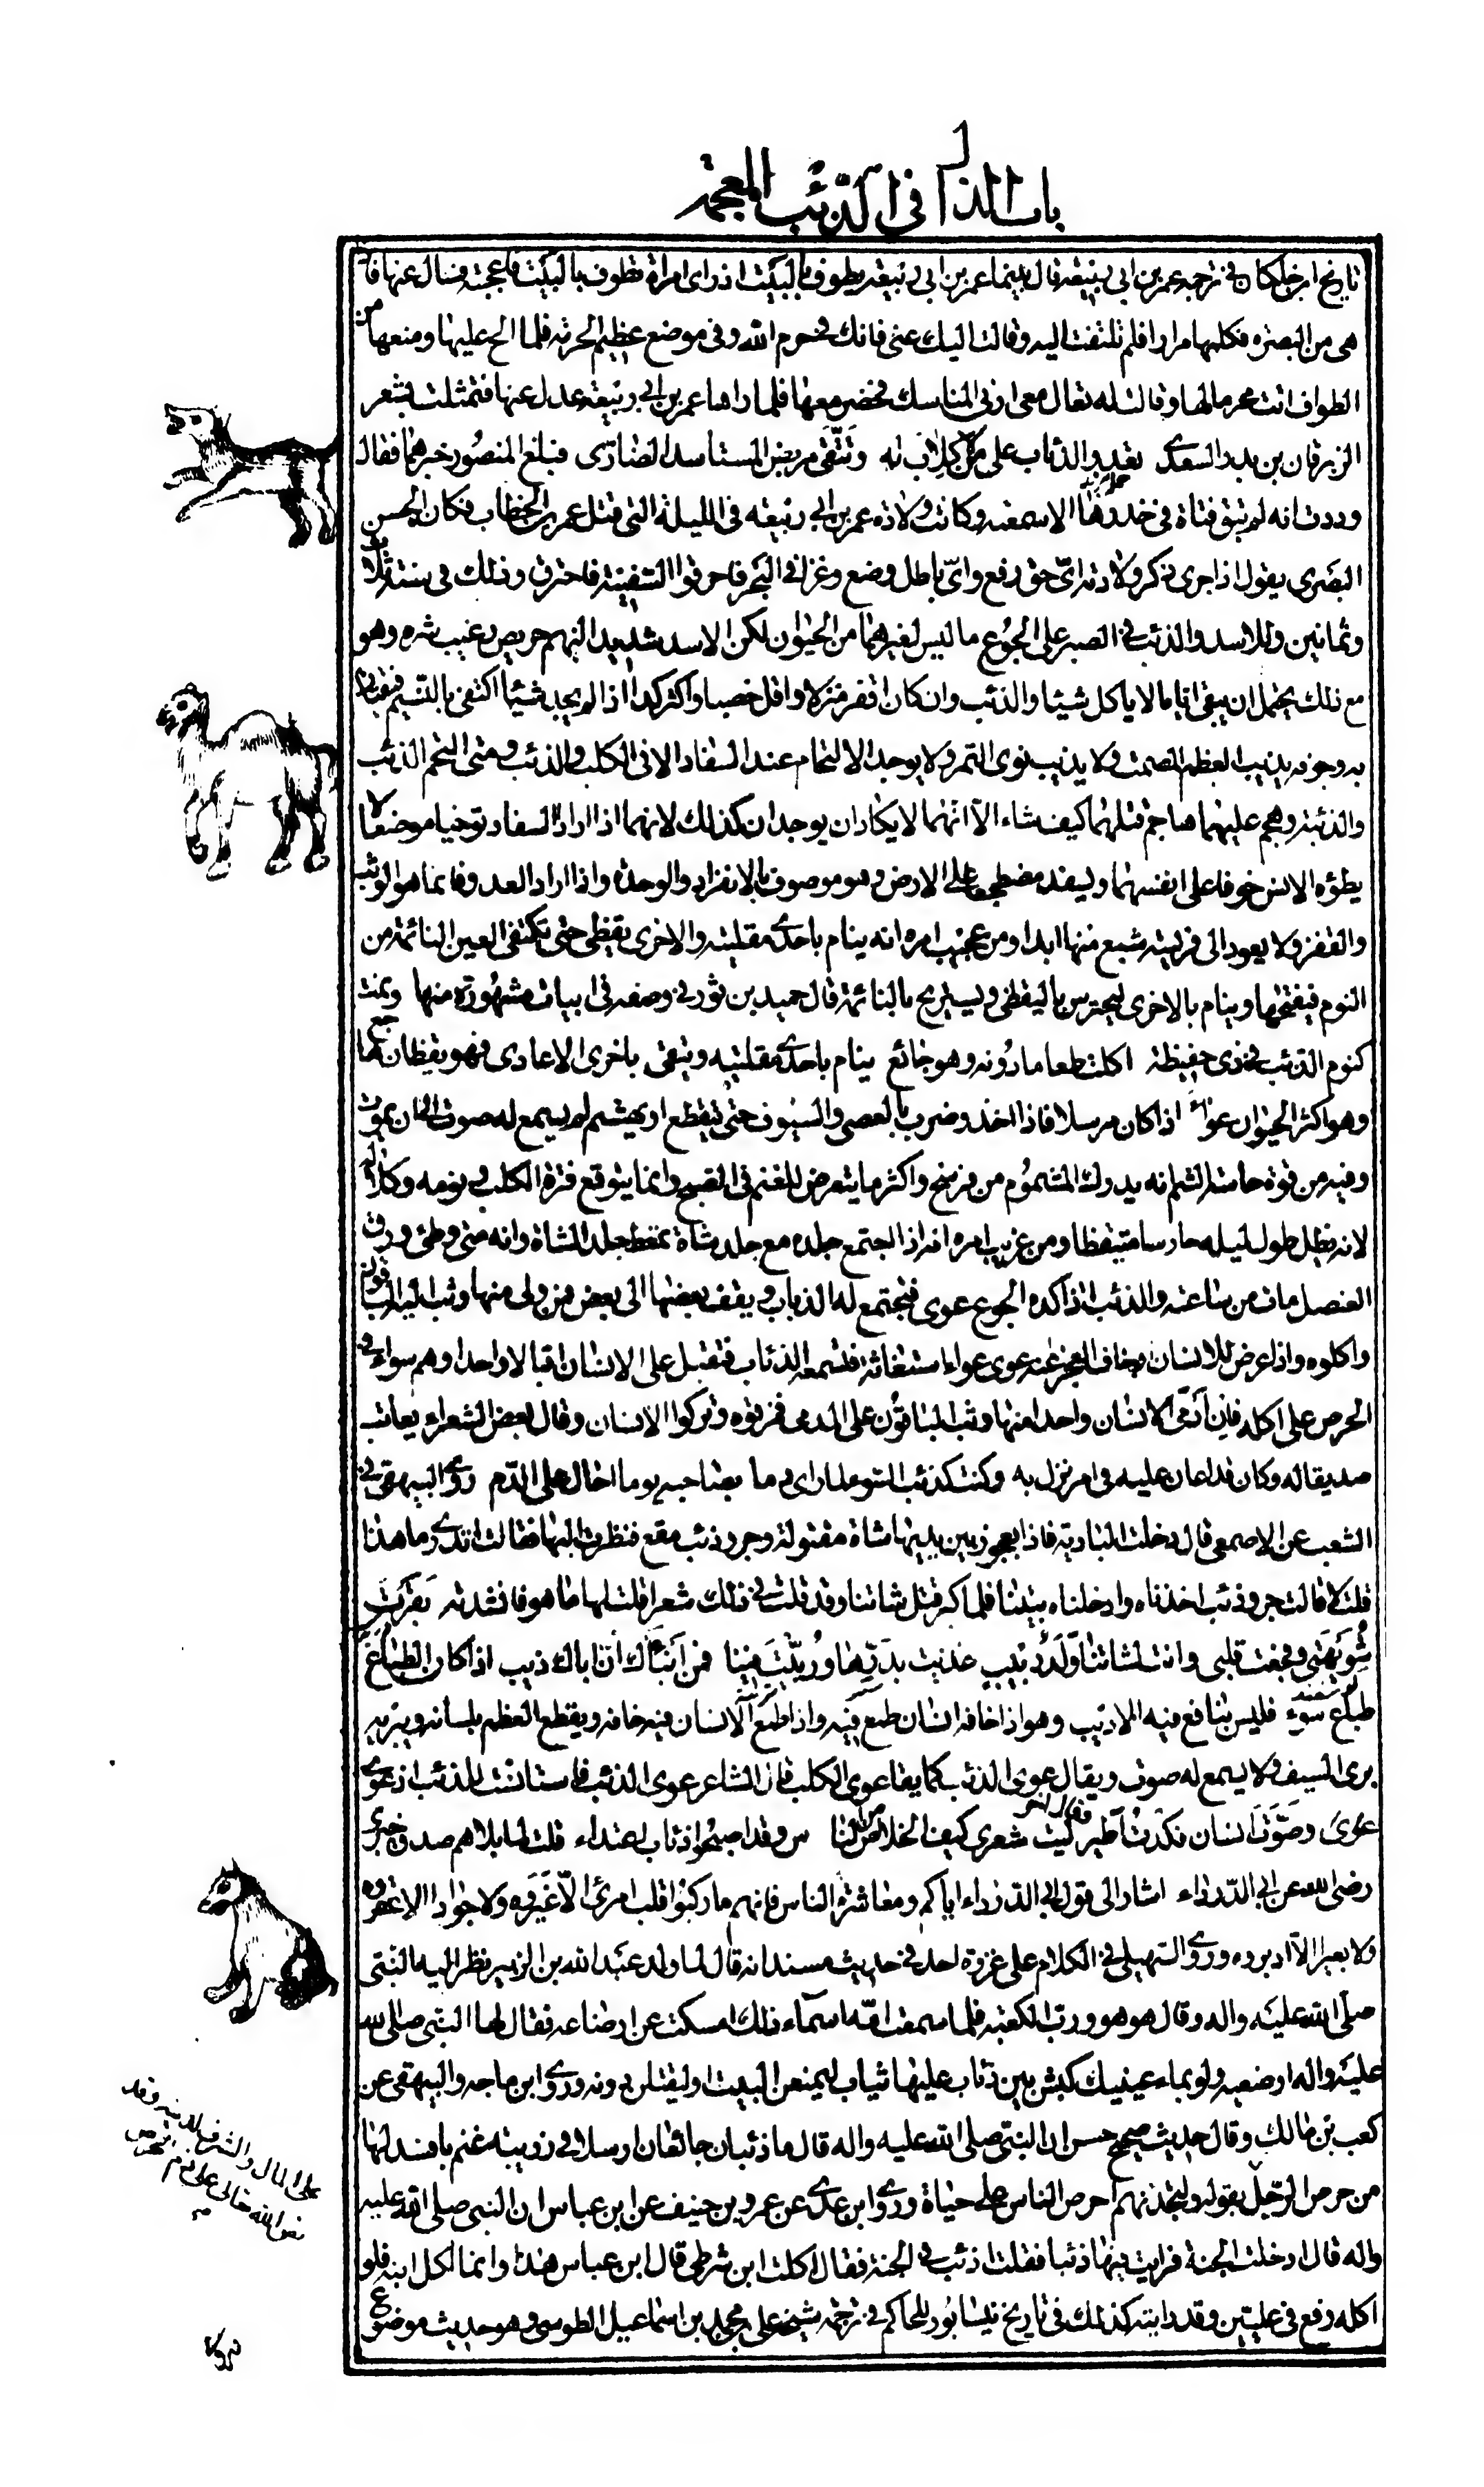 باب الذال فى الذئب المعجمة
تاريخ ابن خلكان فى ترجمة عمر بن ابى ربيعة قال بينما عمر بن ابى ربيعة يطوف بالبيت اذ راى امراة تطوف بالبيت فاعجبته فسال عنها فاذا
هى من البصرة فكلمها مرارا فلم تلتفت اليه وقالت اليك عنى فانك فى حرم الله وفى موضع عظيم الحرمة فلما الح عليها ومنعها من
الطواف اتت محرما لها وقالت له تعال معى ارنى المناسك فحضر معها فلما راها عمر بن ابى ربيعة عدل عنها فتمثلت بشعر
الزبرقان بن بدر السعدى تعدو الذئاب على من لا كلاب له وتتقى مربض المستاسد الضارى فبلغ المنصور خبرهما فقال
وددت انه لم تبق فتاة فى خدرها الا سمعته وكانت ولادة عمر بن ابى ربيعة فى الليلة التى قتل عمر بن الخطاب فكان الحسن
البصرى يقول اذا جرى ذكر ولادته اى حق رفع واى باطل وضع وغزا فى البحر فاحرقوا السفينة فاحترق وذلك فى سنة ثلاث
وثمانين وللاسد والذئب فى الصبر على الجوع ما ليس لغيرهما من الحيوان لكن الاسد شديد النهم حريص رغيب شره وهو
مع ذلك يحتمل ان يبقى اياما لا ياكل شيئا والذئب وان كان اقفر منزلا واقل خصبا واكثر كدا اذا لم يجد شيئا اكتفى بالنسيم فيقتات
به وجوفه يذيب العظم المصمت ولا يذيب نوى التمر ولا يوجد الالتحام عند السفاد الا فى الكلب والذئب ومتى التحم الذئب
والذئبة وهجم عليهما هاجم قتلهما كيف شاء الا انهما لا يكادان يوجدان كذلك لانهما اذا ارادا السفاد توخيا موضعا لا
يطؤه الانس خوفا على انفسهما ويسفد مضطجعا على الارض وهو موصوف بالانفراد والوحدة واذا اراد العدو فانما هو الوثب
والقفز ولا يعود الى فريسة شبع منها ابدا ومن عجيب امره انه ينام باحدى مقلتيه والاخرى يقظى حتى تكتفى العين النائمة من
النوم فيفتحها وينام بالاخرى ليحترس باليقظى ويستريح بالنائمة قال حميد بن ثور فى وصفه فى ابيات مشهورة منها ونمت
كنوم الذئب فى ذى حفيظة اكلت طعاما دونه وهو جائع ينام باحدى مقلتيه ويتقى باخرى الاعادى فهو يقظان هاجع
وهو اكثر الحيوان عواء اذا كان مرسلا فاذا اخذ وضرب بالعصى والسيوف حتى تقطع او يهشم لم يسمع له صوت الى ان يموت
وفيه من قوة حاسة الشم انه يدرك المشموم من فرسخ واكثر ما يتعرض للغنم فى الصبح وانما يتوقع فترة الكلب ونومه وكلاله
لانه يظل طول ليله حارسا متيقظا ومن غريب امره انه اذا اجتمع جلده مع جلد شاة تمعط جلد الشاة وانه متى وطئ ورق
العنصل مات من ساعته والذئب اذا كده الجوع عوى فتجتمع له الذئاب ويقف بعضها الى بعض فمن ولى منها وثب اليه الباقون
واكلوه واذا عرض للانسان وخاف العجز عنه عوى عواء استغاثة فتسمعه الذئاب فتقبل على الانسان اقبالا واحدا وهم سواء فى
الحرص على اكله فان ادمى الانسان واحدا منها وثب الباقون على المدمى فمزقوه وتركوا الانسان وقال بعض الشعراء يعاتب
صديقا له وكان قد اعان عليه فى امر نزل به وكنت كذئب السوء لما راى دما بصاحبه يوما احال على الدم روى البيهقى فى
الشعب عن الاصمعى قال دخلت البادية فاذا بعجوز بين يديها شاة مقتولة وجرو ذئب مقع فنظرت اليها فقالت اتدرى ما هذا
قلت لا قالت جرو ذئب اخذناه وادخلناه بيتنا فلما كبر قتل شاتنا وقد قلت فى ذلك شعرا قلت لها ما هو فانشدته بقرت
شويهتى وفجعت قلبى وانت لشاتنا ولد ربيب غذيت بدرها وربيت فينا فمن انباك ان اباك ذيب اذا كان الطباع
طباع سوء فليس بنافع فيه الاديب وهو اذا خافه انسان طمع فيه واذا طمع الانسان فيه خافه ويقطع العظم بلسانه ويبريه
برى السيف ولا يسمع له صوت ويقال عوى الذئب كما يقال عوى الكلب قال الشاعر عوى الذئب فاستانست للذئب اذ عوى
عوى وصوت انسان فكدت اطير وقال اخر ليت شعرى كيف الخلاص من الناس وقد اصبحوا ذئاب اعتداء قلت لما بلاهم صدق خبرى
رضى الله عن ابى الدرداء اشار الى قول ابى الدرداء اياكم ومعاشرة الناس فانهم ما ركبوا قلب امرئ الا غيروه ولا جوادا الا عقروه
ولا بعيرا الا ادبروه وروى السهيلى فى الكلام على غزوة احد فى حديث مسند انه قال لما ولد عبد الله بن الزبير نظر اليه النبى
صلى الله عليه واله وقال هو هو ورب الكعبة فلما سمعت امه اسماء ذلك امسكت عن ارضاعه فقال لها النبى صلى الله
عليه واله ارضعيه ولو بماء عينيك كبش بين ذئاب عليها ثياب ليمنعن البيت او ليقتلن دونه وروى ابن ماجه والبيهقى عن
كعب بن مالك وقال حديث صحيح حسن ان النبى صلى الله عليه واله قال ما ذئبان جائعان ارسلا فى زريبة غنم بافسد لها
من حرص الرجل بقوله ولتجدنهم احرص الناس على حياة وروى ابن عدى عن عمرو بن حنيف عن ابن عباس ان النبى صلى الله عليه
واله قال ادخلت الجنة فرايت فيها ذئبا فقلت اذئب فى الجنة فقال اكلت ابن شرطى قال ابن عباس هذا وانما اكل ابنه فلو
اكله رفع فى عليين وقد رايته كذلك فى تاريخ نيسابور للحاكم فى ترجمة شيخه على بن محمد بن اسماعيل الطوسى وهو حديث موضوع
على المال والشرف لدينه وقد
نص الله تعالى على ذم الحرص